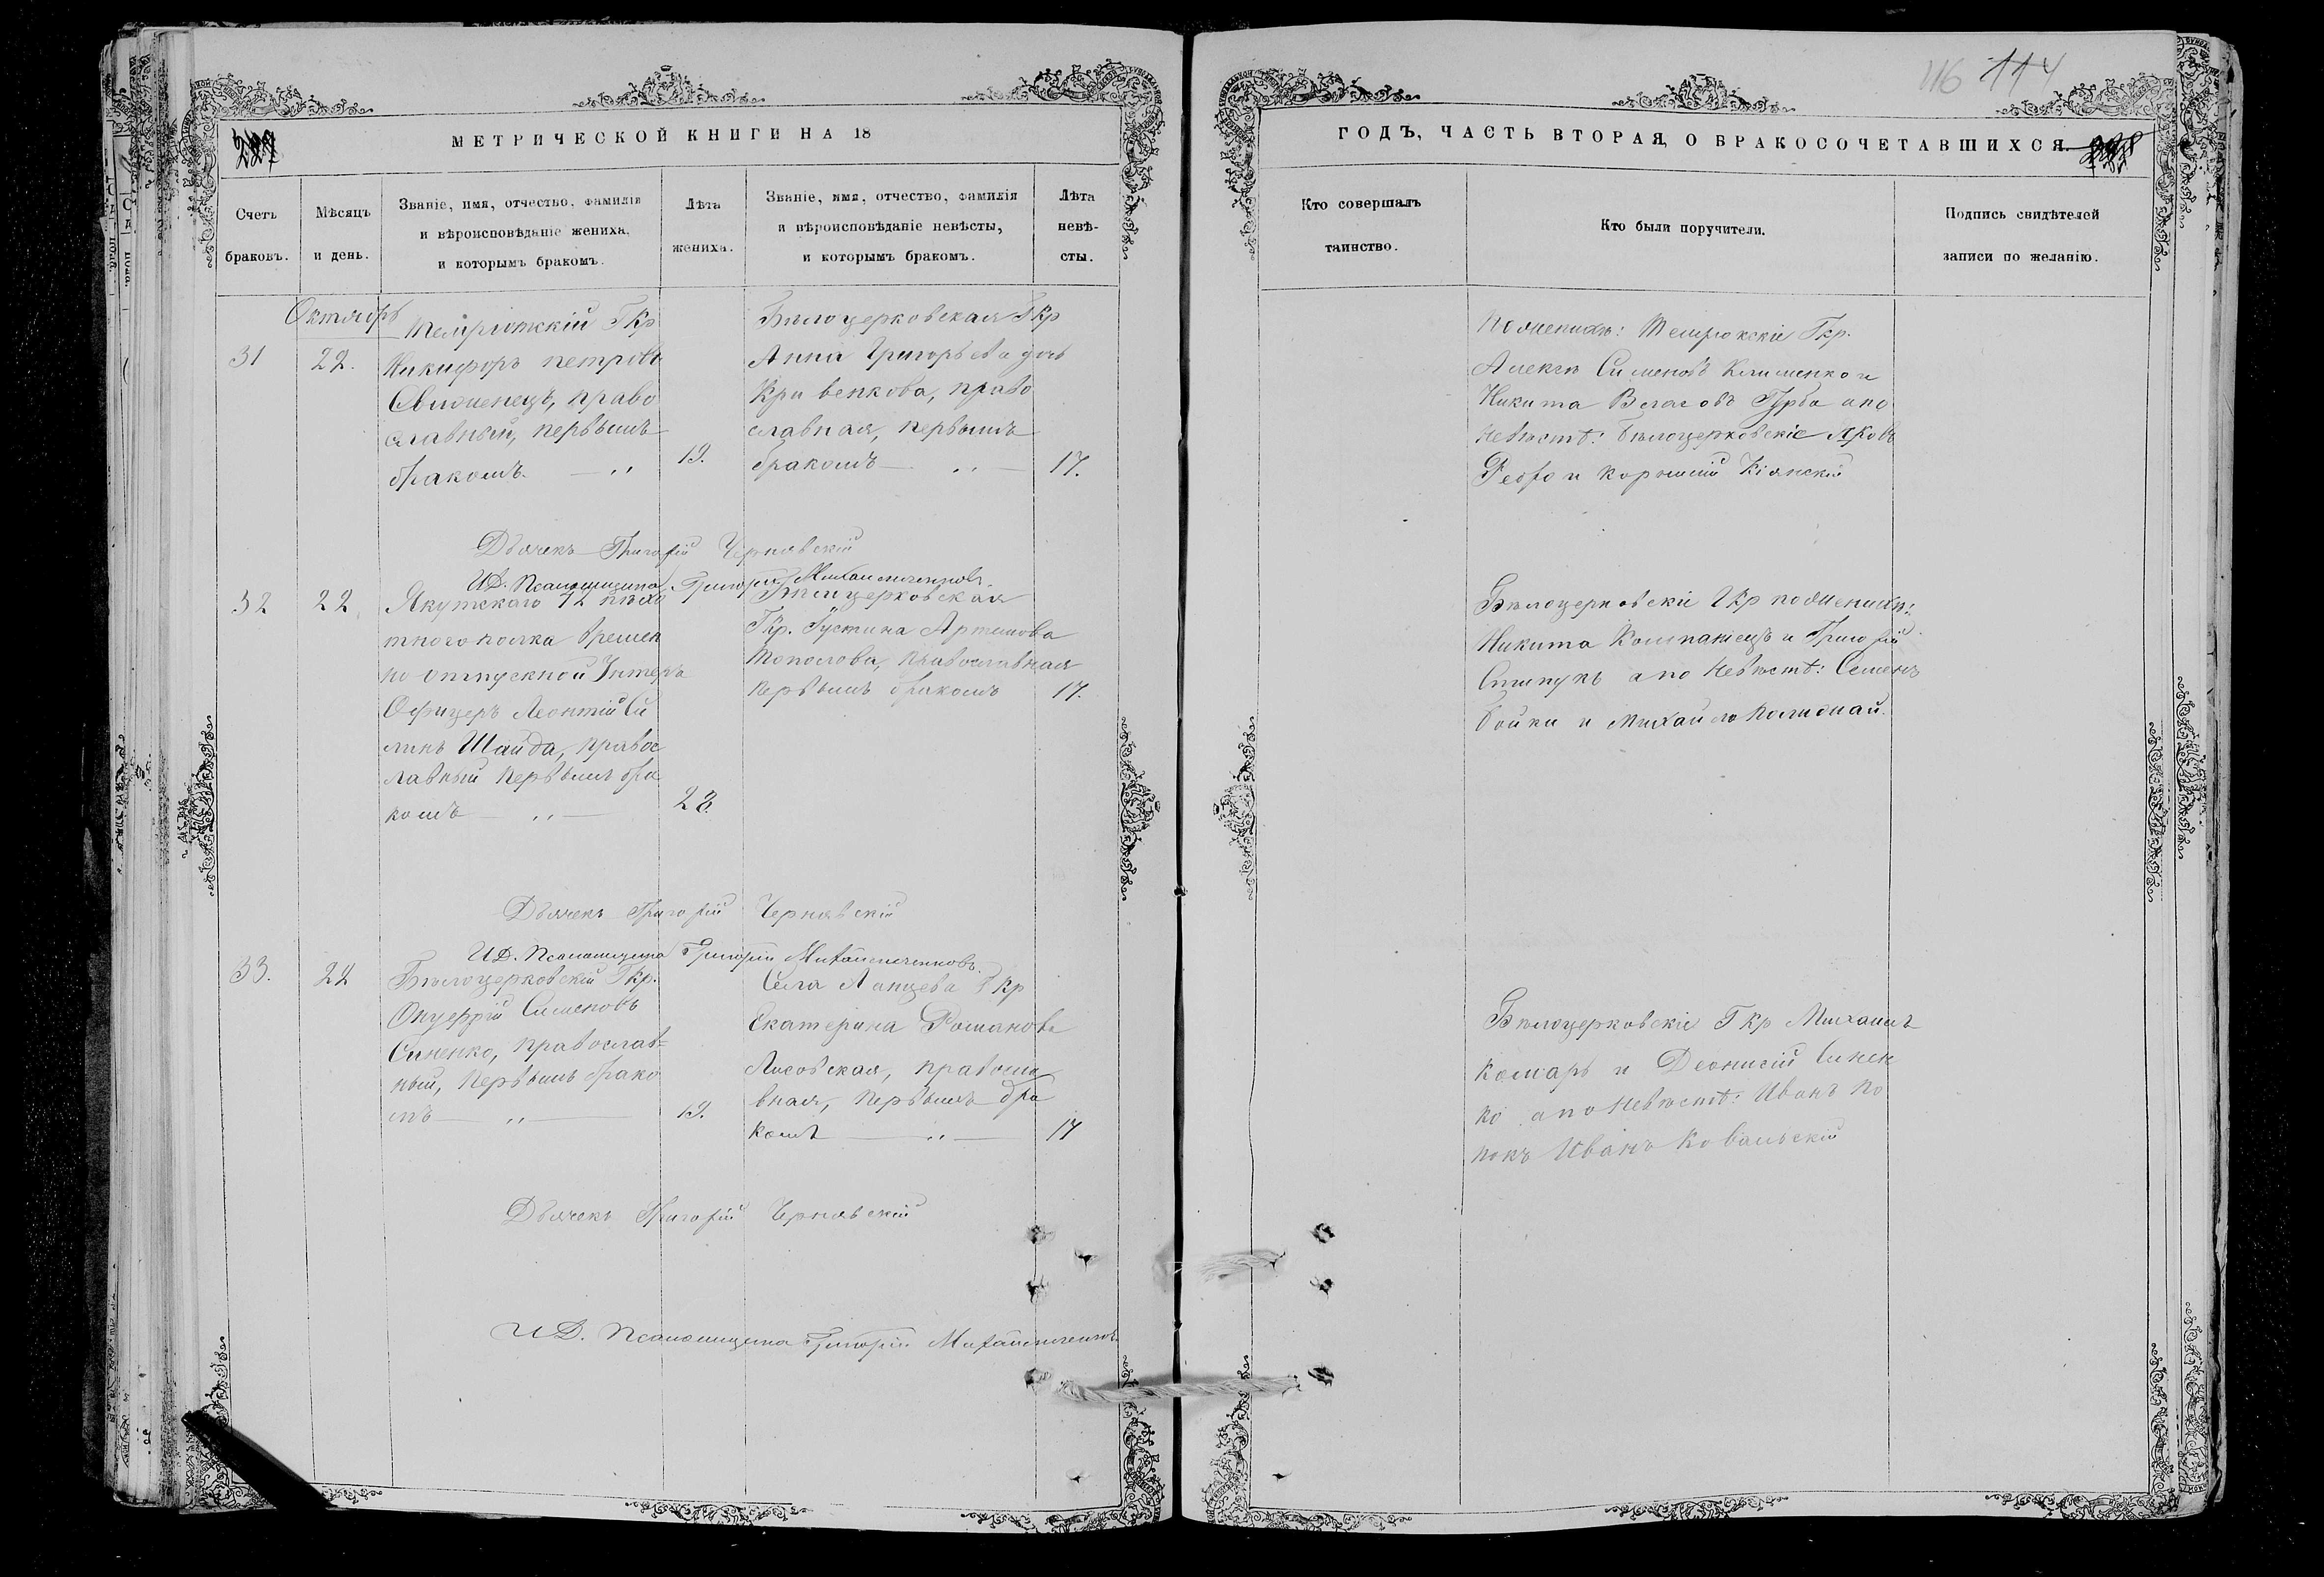 116 114
МЕТРИЧЕСКОЙ КНИГИ НА 18
ГОДЪ, ЧАСТЬ ВТОРАЯ, О БРАКОСОЧЕТАВШИХСЯ.
Счетъ
браковъ.
Мѣсяцъ
и день.
Званіе, имя, отчество, фамилія
и вѣроисповѣданіе жениха,
и которымъ бракомъ.
Лѣта
жениха.
Званіе, имя, отчество, фамилія
и вѣроисповѣданіе невѣсты,
и которымъ бракомъ.
Лѣта
невѣ-
сты.
Кто совершалъ
таинство.
Кто были поручители.
Подпись свидѣтелей
записи по желанію.
Октябрь
31
22.
Гкр
Никифоръ Петровъ
право
славный, первымъ
бракомъ. — „
19.
Бѣлоцерковская Гкр
Анна Григорьева дочь
Кривенкова, право
славная, первымъ
бракомъ — „ —
17.
Гкр.
Алексѣй Сименовъ Клименко и
Никита Власовъ Гурба а по
невѣстѣ: Бѣлоцерковскіе Яковъ
Ребро и Корнилій Кіянскій
Дьячекъ Григорій Чернявскій
И.Д. Псаломщика Григорій
32
22
Якутскаго 42 пѣхо
тнаго полка времен
но отпускной Унтеръ
Офицеръ Леонтій Си
линъ Шайда, правос
лавный первымъ бра
комъ — „ —
28.
Бѣлоцерковская
Гкр. Іустина Артемова
Тополова, православная
первымъ бракомъ
17.
Бѣлоцерковскіе Гкр по женихѣ:
Никита Компаніецъ и Григорій
а по невѣстѣ: Семенъ
Бойко и Михайло
Дьячекъ Григорій Чернявскій
И.Д. Псаломщика Григорій
33.
22
Бѣлоцерковскій Гкр.
Онуфрій Сименовъ
Синенко, православ=
ный, первымъ брако
мъ — „ —
19.
Села Гкр
Екатерина Романова
Лисовская, правосла
вная, первымъ бра
комъ — „ —
17
Бѣлоцерковскіе Гкр Михаилъ
Комаръ и Деонисій Синен
ко а по невѣстѣ: Иванъ По
покъ Иванъ Ковальскій
Дьячекъ Григорій Чернявскій
И.Д. Псаломщика Григорій